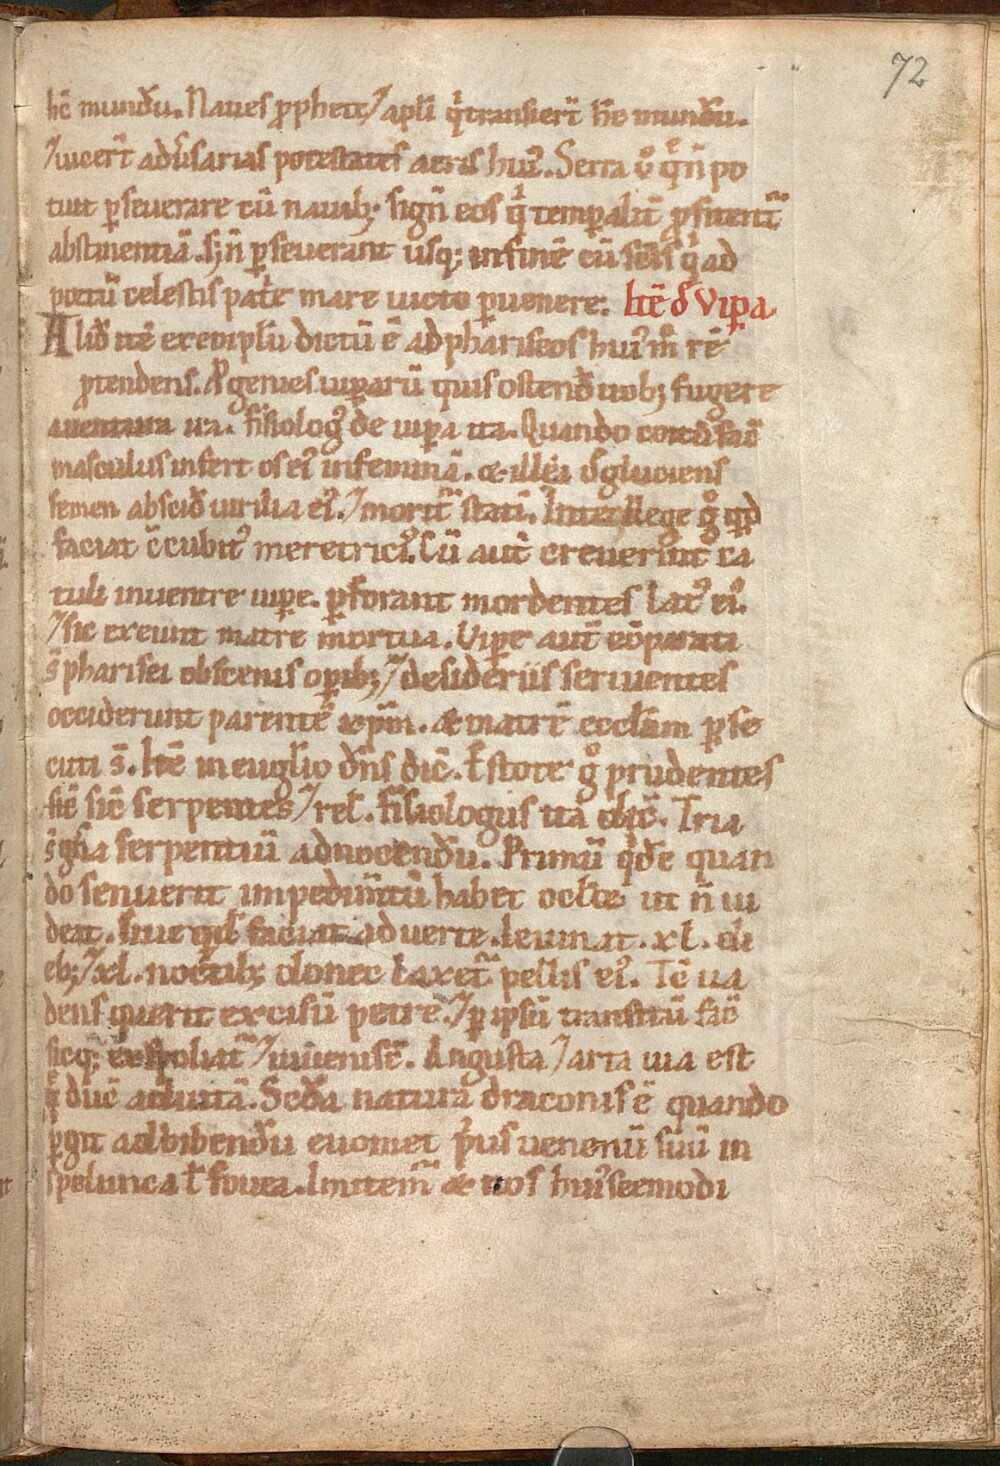 72
hc̄ mundū. Naues ꝓphete ⁊ apl̄i qͥ transier̄t hc̄ mundū.
⁊ uicer̄t adūsarias potestates aeris huiꝰ. Serra ů q̄ ñ po
tuit ꝑseuerare cū nauibꝫ. sigñ eos qͥ temꝑalit̄ ꝓfitent᷑
abstinentiā. sꝫ ñ ꝑseuerant usqꝫ in finē cū sc̄is qͥ ad
portū celestis patͥe mare uicto ꝑuenere: Itē đ vipa.
Aliđ itē exemplū dictū ē ad phariseos huiꝰm̊ rē
ptendens. Ꝓgenies uiꝑarū quis ostenđ uobꝫ fugere
a uentura ira. fisiologꝰ de uiꝑa ita. Quando coitū fac̄
masculus infert os eiꝰ in feminā. & illa đgluciens
semen absciđ uirilia eiꝰ. ⁊ morit᷑ statī. Intellege g̊ qđ
faciat ccubitꝰ meretriciꝰ. Cū aut̄ creuerint ca
tuli in uentre uiꝑe. ꝑforant mordentes latꝰ eiꝰ.
⁊ sic exeunt matre mortua. Vipe aut̄ cōparati
s̄ pharisei obscenis oꝑibꝫ ⁊ desideriis seruientes
occiderunt parentē xp̄m. & matrē eccl̄iam ꝑse
cuti s̄. Itē in euglio dn̄s dic̄. Estote g̊ prudentes
sic̄ serpentes ⁊ rel̄. fisiologus ita dic̄. Tria
s̄ gn̄a serpentiū ad nocendū. Primū qͥde quan
do senuerit impedim̄tū habet oclis ut ñ ui
deat. hue qđ faciat aduerte. Ieiunat. xl. di
ebꝫ ⁊ xl. noctibꝫ donec laxet᷑ pellis eiꝰ. Tē ua
dens querit excisū petre. ⁊ ꝑ ipsū transitū fac̄
sicqꝫ exspoliat᷑ ⁊ iuuenisc̄. Angusta ⁊ arta uia est
q̄ duc̄ ad uitā. Scđa natura draconis ē quando
ꝑgit ad bibendū euomet pͥus uenenū suū in
spelunca ł fouea. Imitem᷑ & nos huiꝰscemodi